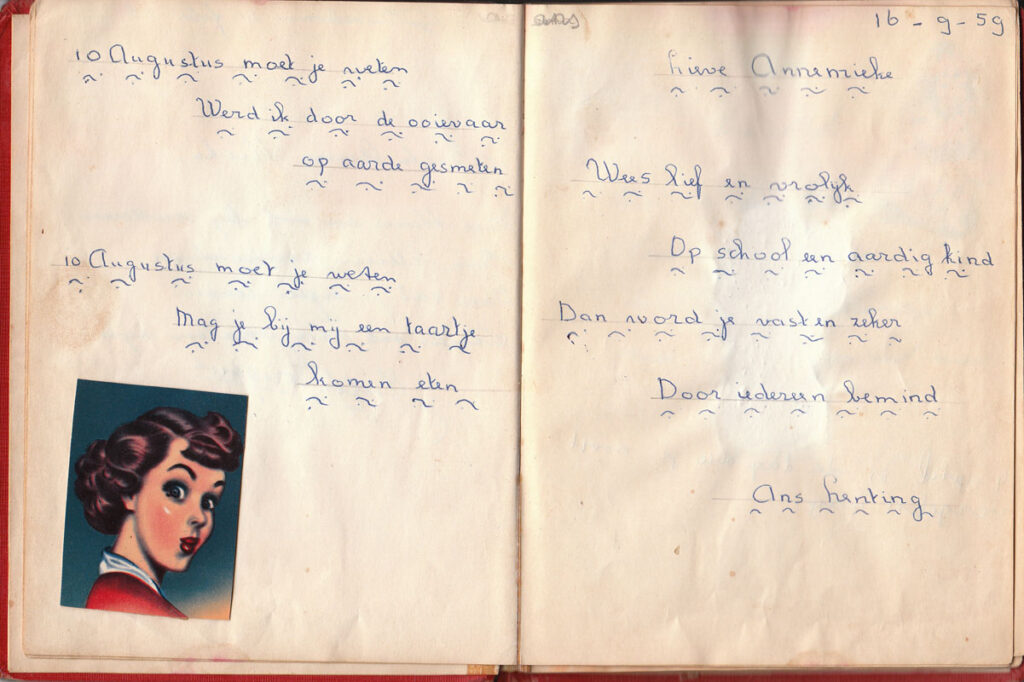 10 Augustus moet je weten
Werd ik door de ooievaar
op aarde gesmeten
10 Augustus moet je weten
Mag je bij mij een taartje
komen eten
16 - 9 - 59
Lieve Annemieke
Wees lief en vrolijk
Op school een aardig kind
Dan word je vast en zeker
Door iedereen bemind
Ans Lenting